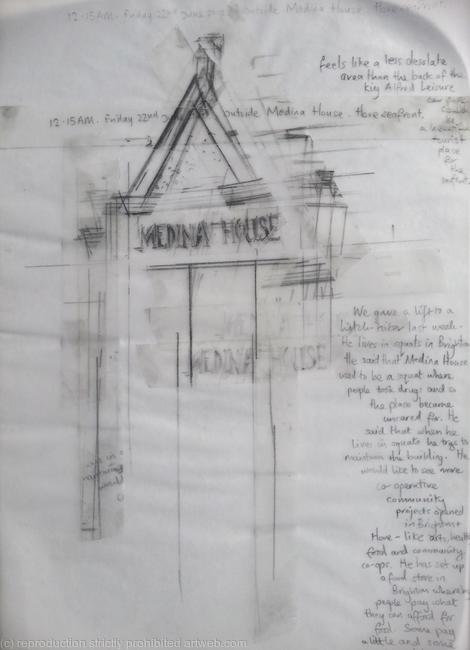 12.15AM. Friday 22nd June outside Medina House. Hove seafront.
feels like a less desolate
area than the back of the
King Alfred Leisure
12.15AM. Friday 22nd outside Medina House. Hove seafront.
a
tourist
place
for
the
MEDINA HOUSE
MEDINA HOUSE
We gave a lift to a
hitch-hiker last week.
He lives in squats in Brighton
He said that Medina House
used to be a squat where
people took drugs and so
the place became
uncared for. He
said that when he
lives in squats he trys to
maintain the building. He
would like to see more
co-operative
community
projects opened
in Brighton &
Hove - like arts, health
food and community
co-ops. He has set up
a food store in
Brighton where
people pay what
they can afford for
food. Some pay
a little and some
(c) reproduction strictly prohibited artweb.com